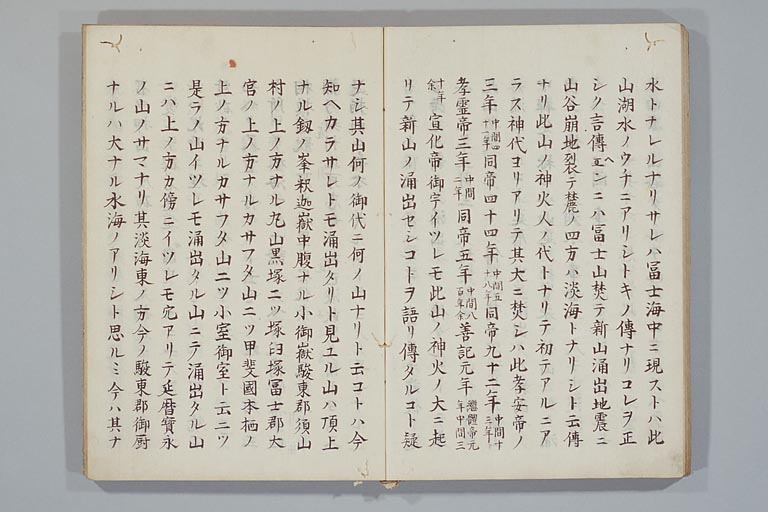 水トナレルナリサレハ冨士海中ニ現ストハ此
山湖水ノウチニアリシトキノ傳ナリコレヲ正
シク言傳ヘンニハ冨士山焚テ新山涌出地震ニ
山谷崩地裂テ麓ノ四方ハ淡海トナリシト云傳
ナリ此山ノ神火人ノ代トナリテ初テアルニア
ラス神代ヨリアリテ其大ニ焚シハ此孝安帝ノ
三年中間四十一年同帝四十四年中間五十八年同帝九十二年中間十三年
孝霊帝三年中間二年同帝五年中間八百年余善記元年継體帝元年中間三
十年余宣化帝御宇イツレモ此山ノ神火ノ大ニ起
リテ新山ノ涌出セシコトヲ語リ傳タルコト疑
ナシ其山何ノ御代ニ何ノ山ナリト云コトハ今
知ヘカラサレトモ涌出タリト見エル山ハ頂上
ナル釼ノ峯釈迦嶽中腹ナル小御嶽駿東郡須山
村ノ上ノ方ナル丸山黒塚二ツ塚臼塚冨士郡大
宮ノ上ノ方ナルカサフタ山二ツ甲斐國本栖ノ
上ノ方ナルカサフタ山二ツ小室御室ト云二ツ
是ラノ山イツレモ涌出タル山ニテ涌出タル山
ニハ上ノ方カ傍ニイツレモ穴アリテ延暦寳永
ノ山ノサマナリ其淡海東ノ方今ノ駿東郡御厨
ナルハ大ナル水海ノアリシト思ルミ今ハ其ナ